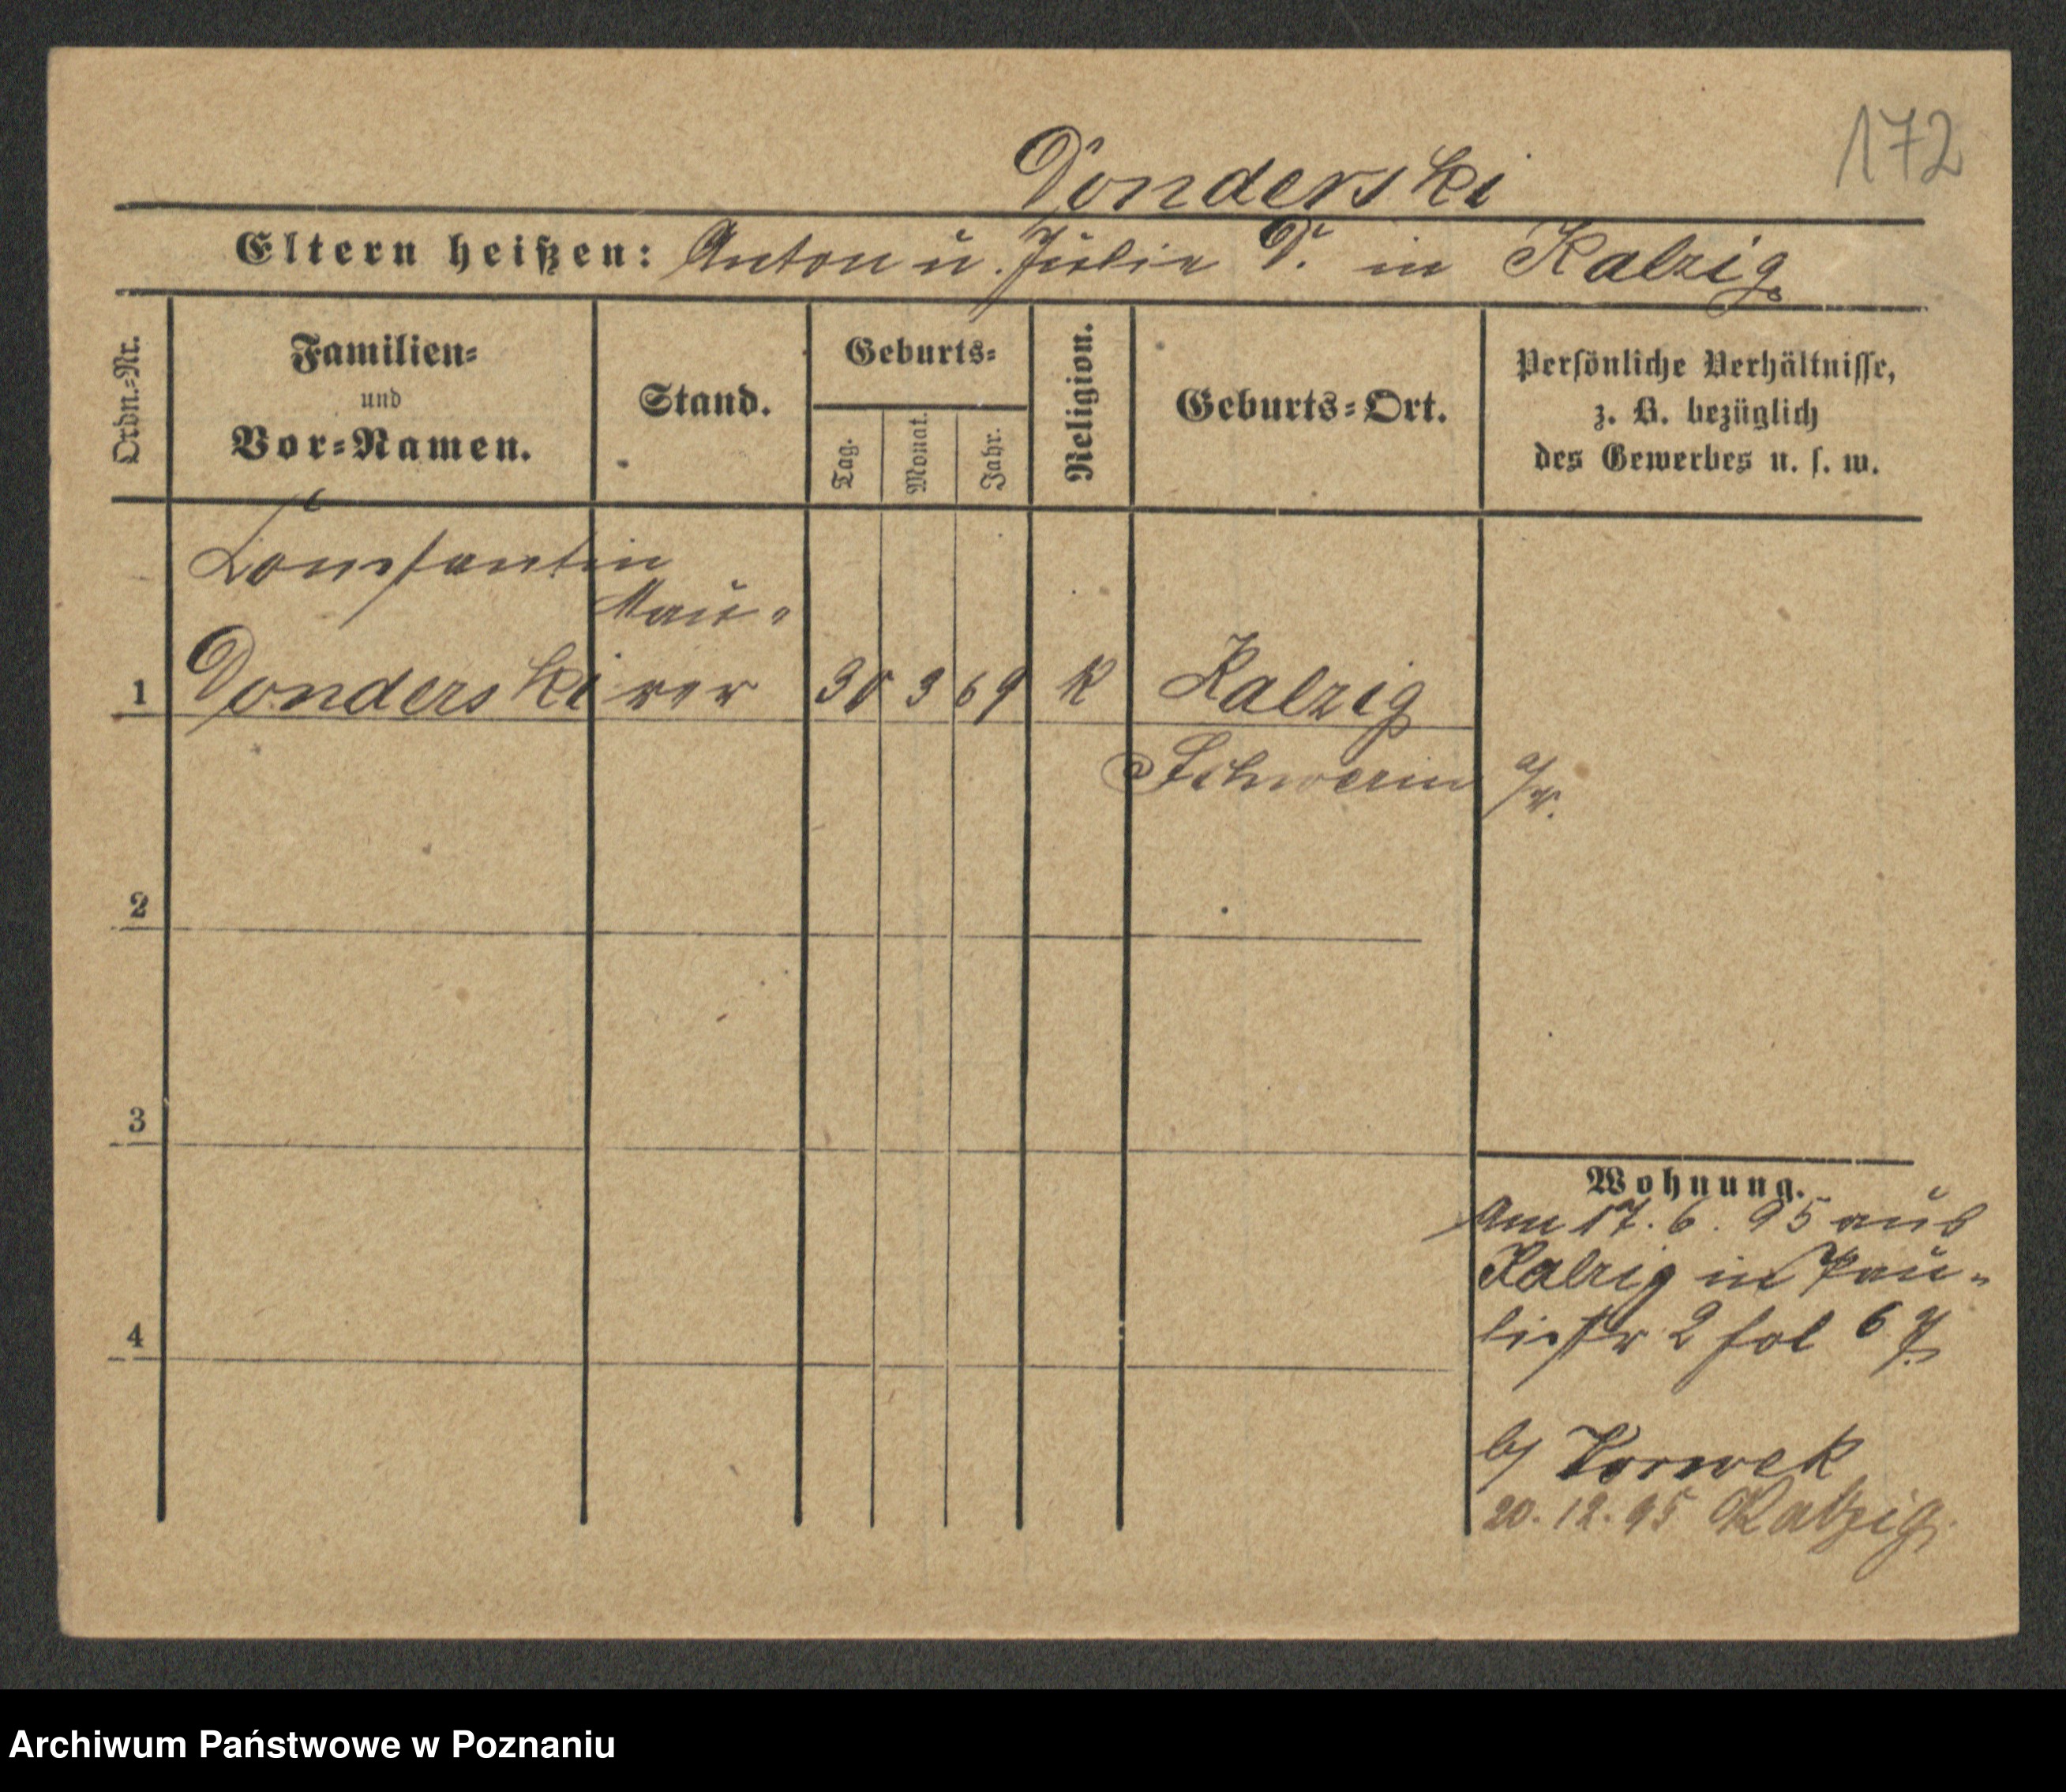 172
Donderski
Eltern heißen: Anton u. Julie D. in Kalzig
Ordn.-Nr.
Familien-
und
Vor-Namen.
Stand.
Geburts-
Tag.
Monat.
Jahr.
Religion.
Geburts-Ort.
Persönliche Verhältnisse,
z. B. bezüglich
des Gewerbes u. s. w.
Constantin
Mau-
1 Donderski rer 30 3 69 K Kalzig
Schwerin a/W.
2
3
4
Wohnung.
Am 17. 6. 95 aus
Kalzig in Pau-
listr 2 fol 67
b/ Vorwek
20.12.95 Kalzig.
Archiwum Państwowe w Poznaniu